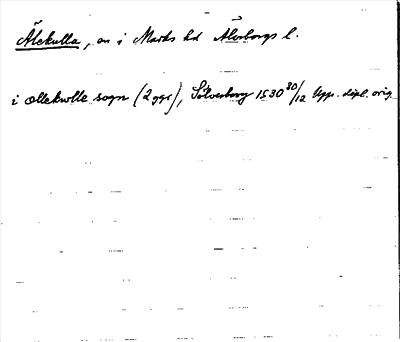 Älekulla, sn i Marks hd Älvsborgs l.
i ollekwlle sogn (2 ggr), Sölvesborg 1530 30/12 Upps. dipl. orig.